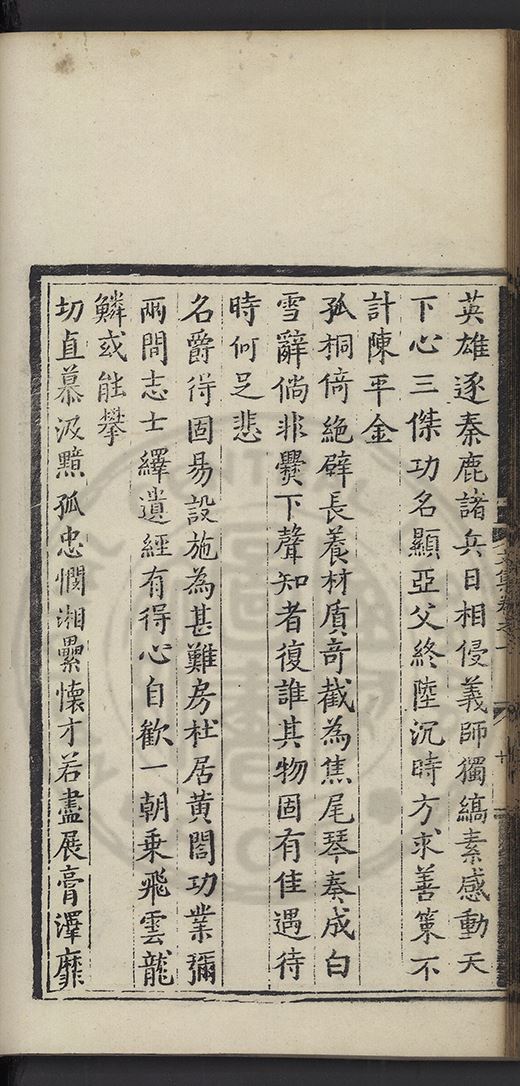 英雄逐秦鹿諸兵日相侵義師獨縞素感動天
下心三傑功名顯亞父終陸沉時方求善策不
計陳平金
孤桐倚絶壁長養材質奇截為焦尾琴奏成白
雪辭倘非爨下聲知者復誰其物固有佳遇待
時何足悲
名爵得固易設施為甚難房杜居黄閣功業彌
兩間志士繹遺經有得心自歡一朝乗飛雲龍
鱗或能攀
切直慕汲黯孤忠憫湘纍懷才若盡展膏澤靡